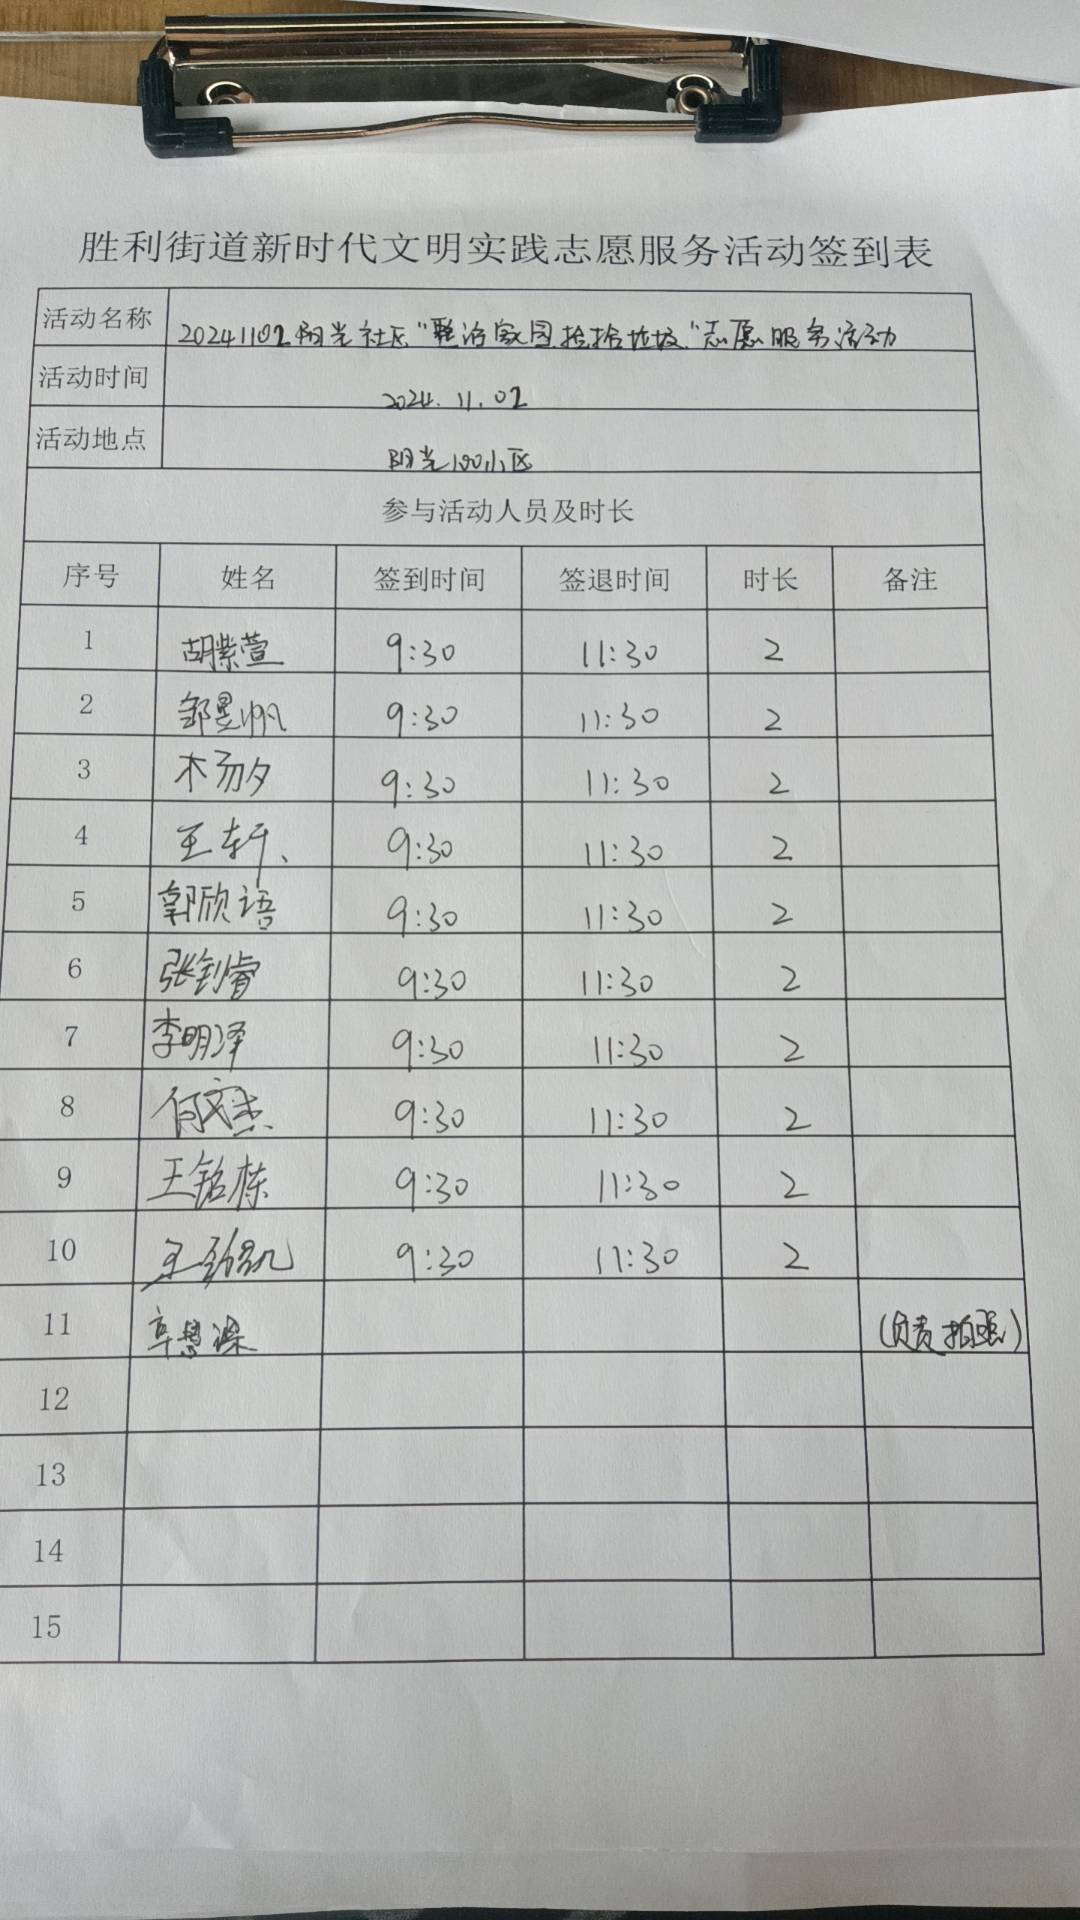 胜利街道新时代文明实践志愿服务活动签到表
活动名称 20241102阳光社区"整治家园 捡拾垃圾"志愿服务活动
活动时间 2024.11.02
活动地点 阳光100小区
参与活动人员及时长
序号 姓名 签到时间 签退时间 时长 备注
1 胡紫萱 9:30 11:30 2
2 邹昱帆 9:30 11:30 2
3 9:30 11:30 2
4 王轩 9:30 11:30 2
5 郭欣语 9:30 11:30 2
6 张钊睿 9:30 11:30 2
7 李明泽 9:30 11:30 2
8 何文杰 9:30 11:30 2
9 王铭栋 9:30 11:30 2
10 王 9:30 11:30 2
11 辛慧 (负责拍照)
12
13
14
15